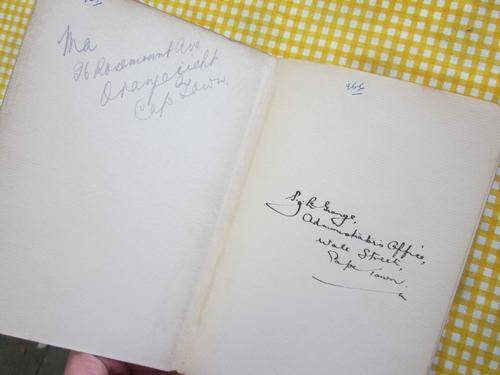 Ma
96 Rosemount Ave
Oranjezicht
Cape Town.
366
George,
Administrator's Office,
Wale Street,
Cape Town.